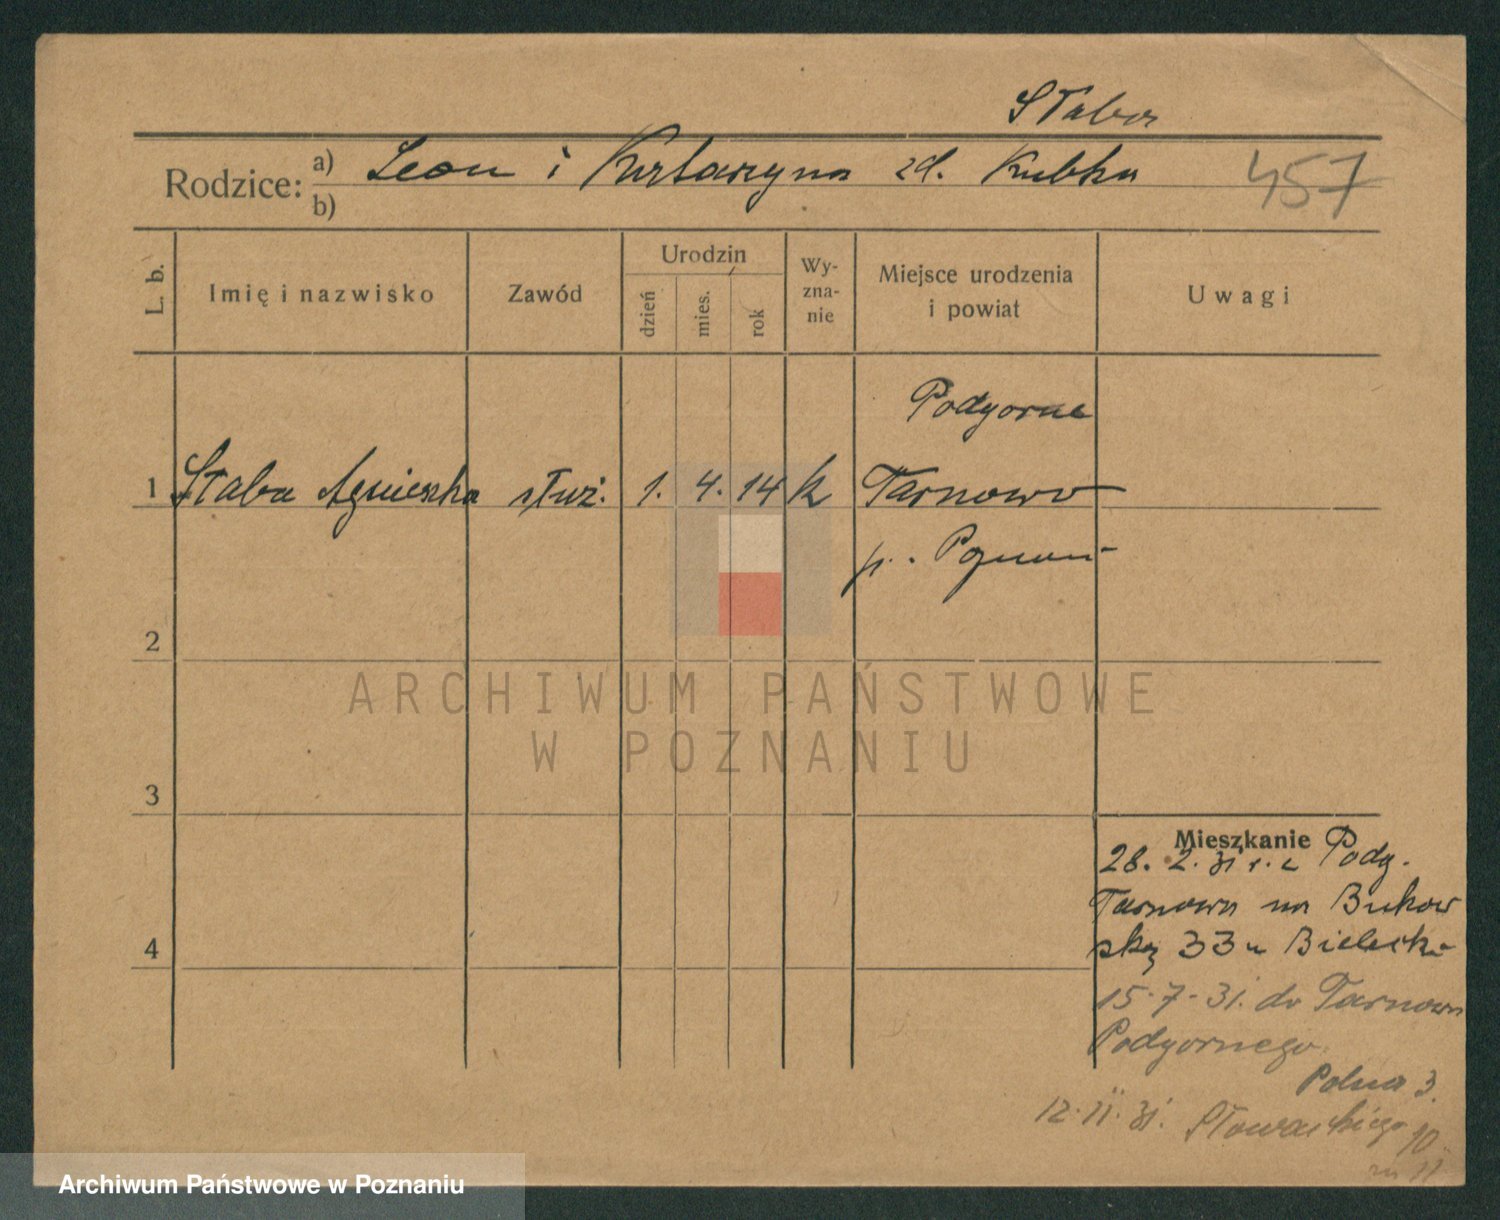 Słaba
Rodzice: a) Leon i Katarzyna zd. Kubka
b)
457
L. b.
Imię i nazwisko
Zawód
Urodzin
dzień
mies.
rok
Wy-
zna-
nie
Miejsce urodzenia
i powiat
Uwagi
Podgorne
1 Słaba Agnieszka służ. 1. 4. 14 k Tarnowo
p. Poznań
2
ARCHIWUM PAŃSTWOWE
W POZNANIU
3
Mieszkanie
28. 2. 31 r. z Podg.
Tarnowa na Bukow
ską 33 u
4
15.7.31. do Tarnowa
Podgornego
Polna 3.
12.11.31. Słowackiego 10
m 11
Archiwum Państwowe w Poznaniu